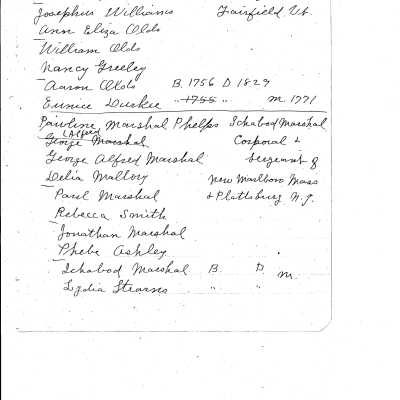 Josephus Williams Fairfield Vt.
Ann Eliza Olds
William Olds
Nancy Greeley
Aaron Olds B. 1756 D 1829
Eunice Durkee " 1755 " m. 1771
Pauline Marshal Phelps Ichabod Marshal
(Alfred
George Marshal Corporal &
George Alfred Marshal Sergeant of
Delia Mallory New Marlboro Mass
Paul Marshal & Plattsburg N.Y.
Rebecca Smith
Jonathan Marshal
Phebe Ashley
Ichabod Marshal B. D. m.
Lydia Stearns " "